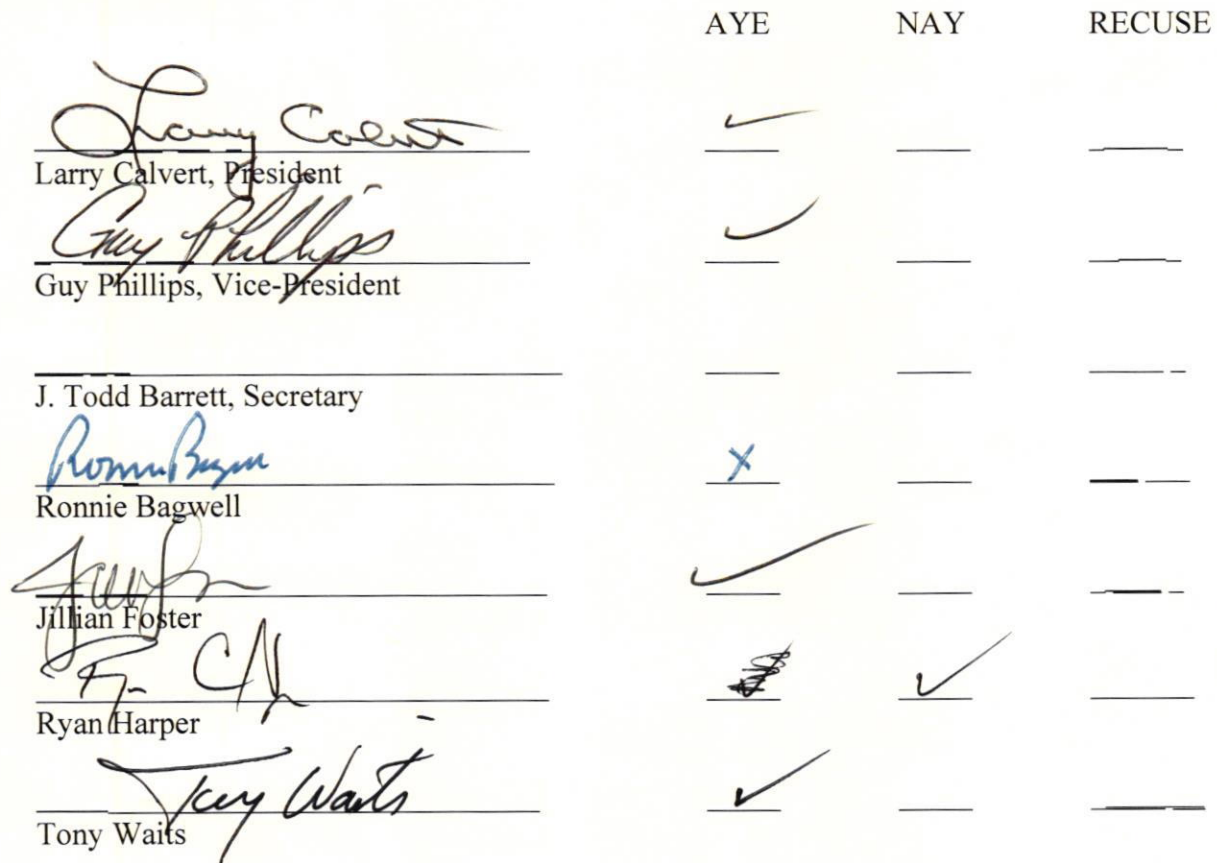 AYE NAY RECUSE
Larry Calvert ✓
Larry Calvert, President
Guy Phillips ✓
Guy Phillips, Vice-President
J. Todd Barrett, Secretary
Ronnie X
Ronnie Bagwell
✓
Jillian Foster
✓
Ryan Harper
Tony Waits ✓
Tony Waits